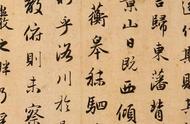 言歸東藩背
景山日既西傾
蘅皋秣駟
乎洛川於是
散俯則未察
巖之畔乃